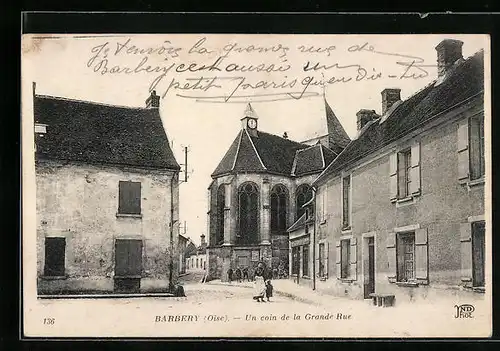 Je Tenvoie la grande rue de
Barbery cest aussi un
petit Paris quendis-Tu
136 BARBERY (Oise). - Un coin de la Grande Rue
ND
PHOT